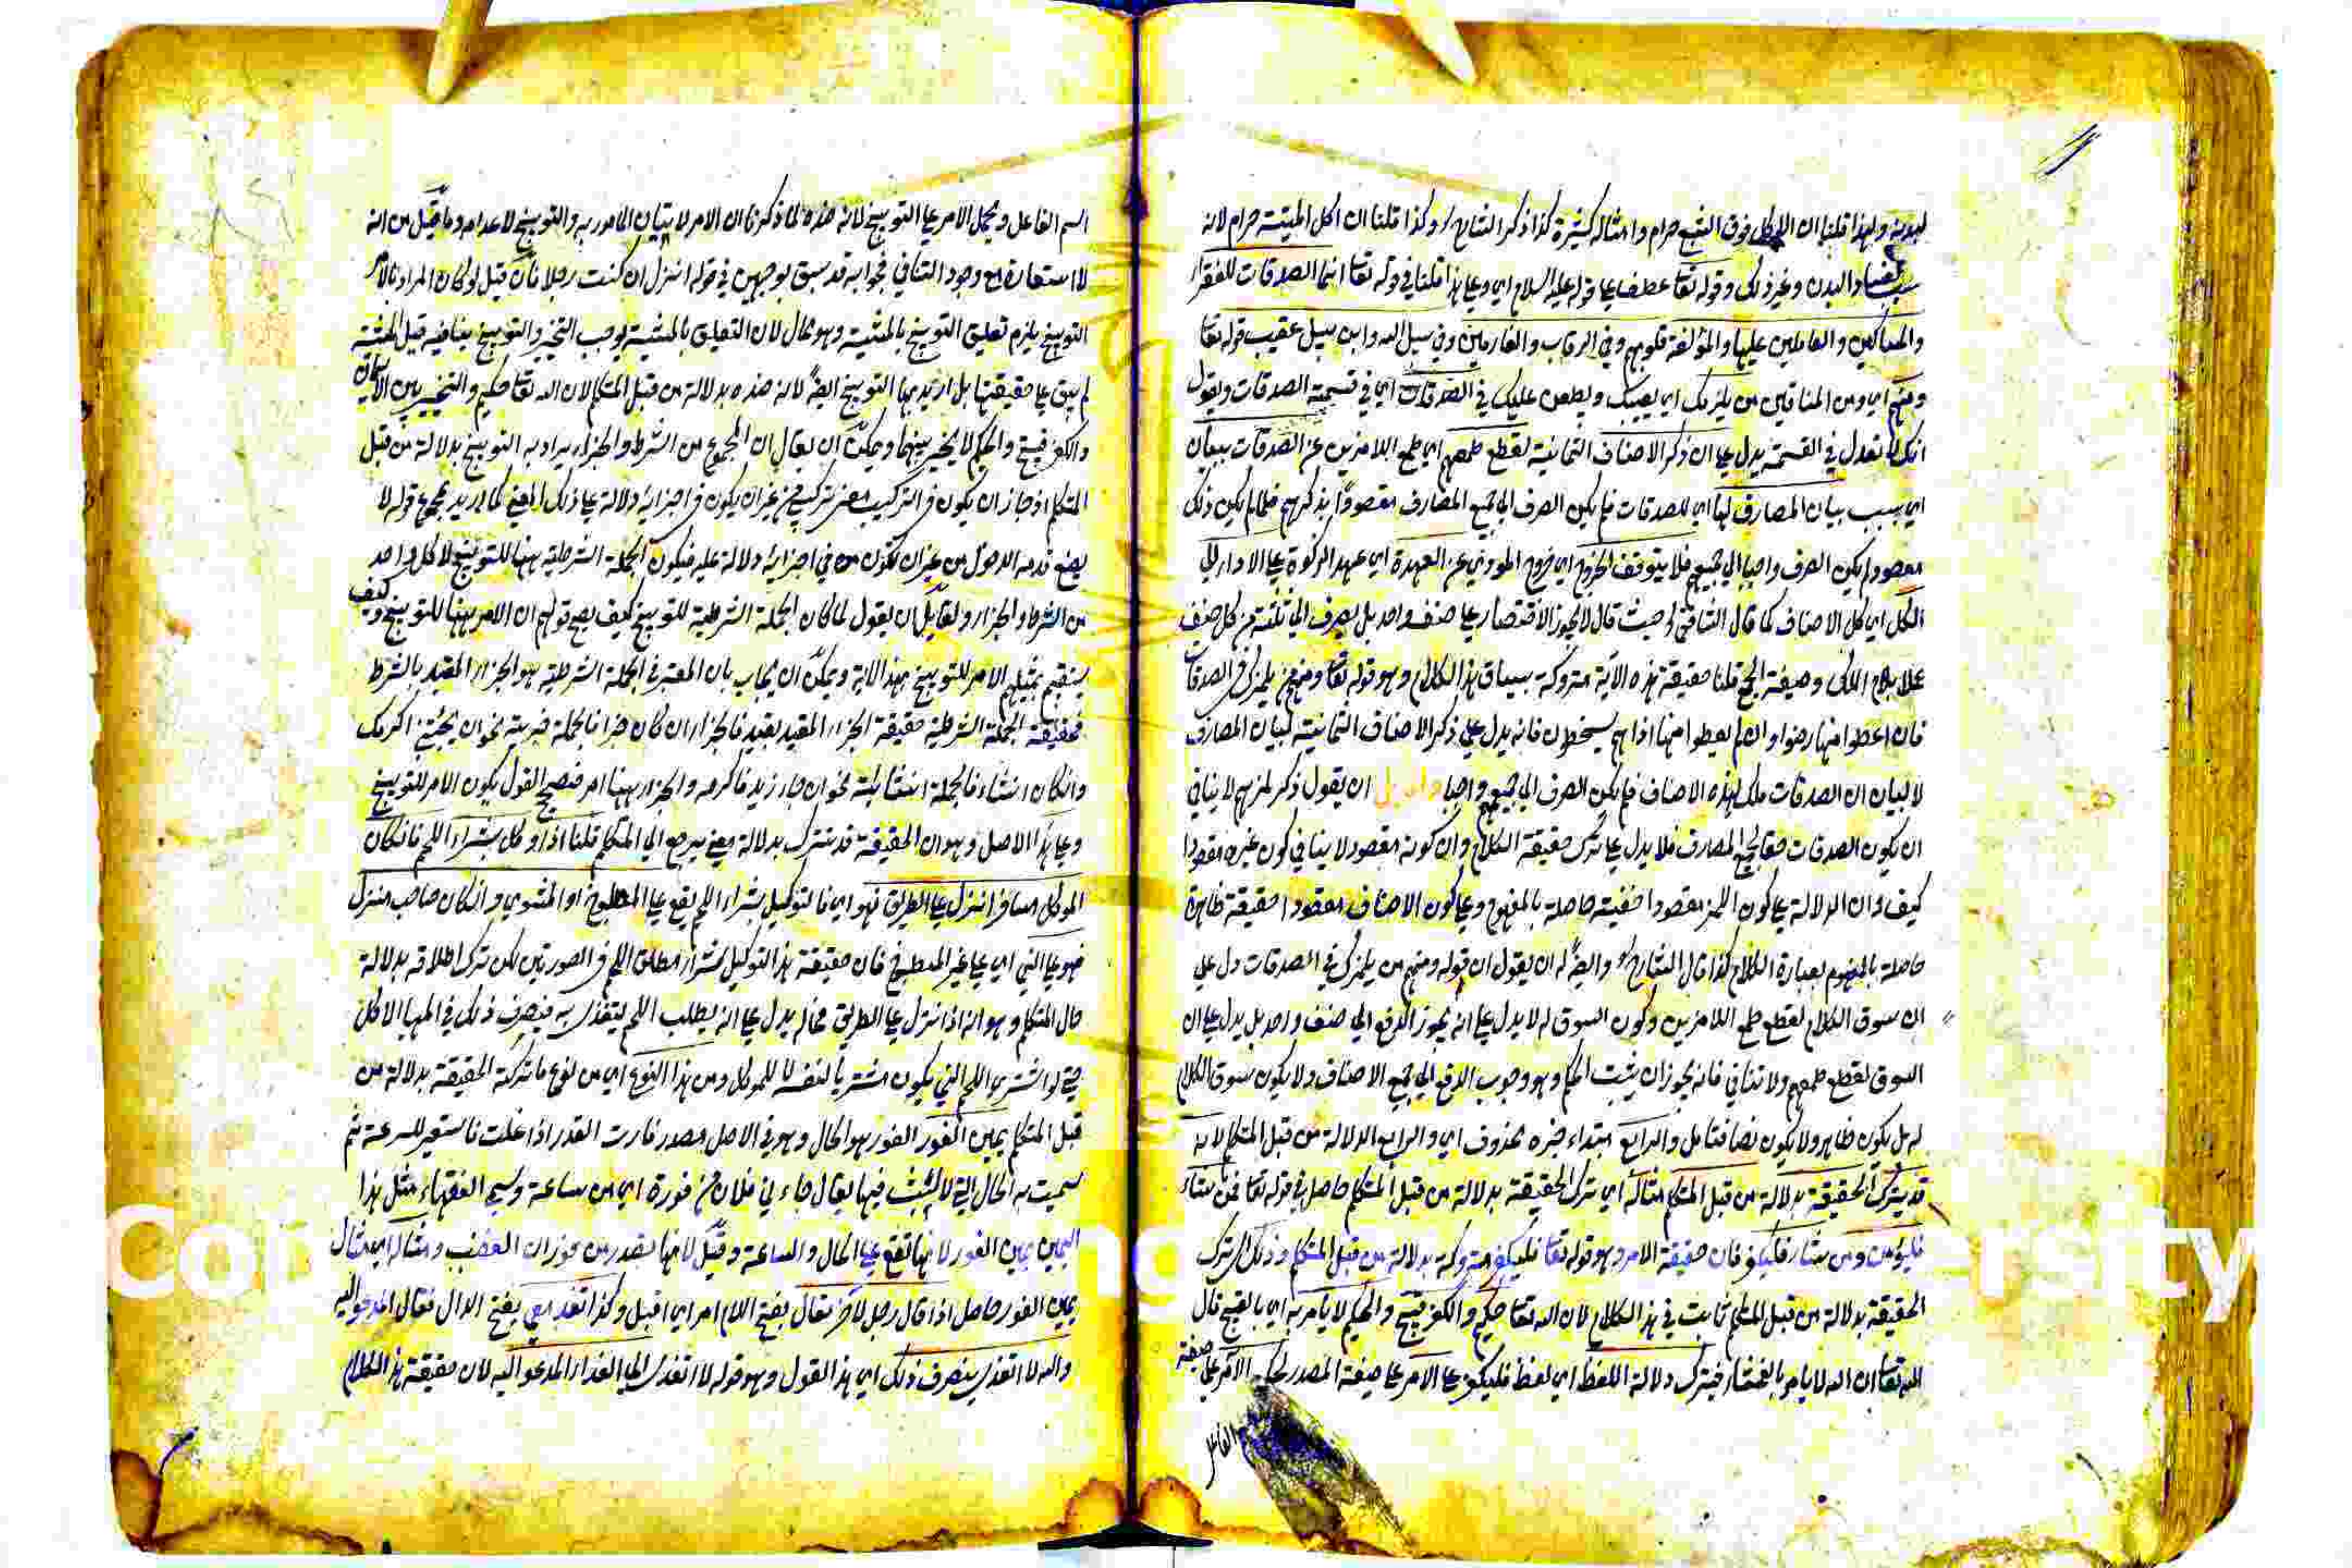 ولهذا قلنا ان الاكل فوق الشبع حرام وامثاله كثيرة كذا ذكر الشارح وكذا قلنا ان اكل الميتة حرام لانه
والبدن وغير ذلك وقوله تعا عطف على قوله عليه السلام اي وعلى هذا قلنا في قوله تعا انما الصدقات للفقراء
والمساكين والعاملين عليها والمؤلفة قلوبهم وفي الرقاب والغارمين وفي سبيل الله وابن سبيل عقيب قوله تعا
ومنهم اي ومن المنافقين من يلمزك اي يعيبك ويطعن عليك في الصدقات اي في قسمة الصدقات ويقول
انك لا تعدل في القسمة يدل على ان ذكر الاصناف الثمانية لقطع طمعهم اي طمع اللامزين عن الصدقات ببيان
اي بسبب بيان المصارف لها اي للصدقات فلم يكن الصرف الى جميع المصارف مقصودا بذكرهم فلما لم يكن ذلك
مقصودا لم يكن الصرف واجبا الى جميعهم فلا يتوقف الخروج اي خروج المودي عن العهدة اي عهد الزكوة على الاداء الى
الكل اي كل الاصناف كما قال الشافعي حيث قال لا يجوز الاقتصار على صنف واحد بل يصرف الى ثلثة من كل صنف
وصيغة الجمع قلنا حقيقة هذه الآية متروكة بسياق هذا الكلام وهو قوله تعا ومنهم من يلمزك في الصدقات
فان اعطوا منها رضوا وان لم يعطوا منها اذا هم يسخطون فانه يدل على ذكر الاصناف الثمانية لبيان المصارف
لا لبيان ان الصدقات ملك لهذه الاصناف فلم يكن الصرف الى جميعهم واجبا ان يقول ذكر لمزهم لا ينافي
ان يكون الصدقات حقا لجميع المصارف فلا يدل على ترك حقيقة الكلام وان كونه مقصود لا ينافي كون غيره مقصودا
كيف وان الدلالة على كون اللمز مقصودا خفية حاصلة بالمفهوم وعلى كون الاصناف مقصودا حقيقة ظاهرة
حاصلة بالمفهوم بعبارة الكلام كذا قال الشارح وايضا له ان يقول ان قوله ومنهم من يلمزك في الصدقات دل على
ان سوق الكلام لقطع طمع اللامزين وكون السوق له لا يدل على انه يجوز الدفع الى صنف واحد بل يدل على ان
السوق لقطع طمعهم ولا تنافي فانه يجوز ان يثبت الحكم وهو وجوب الدفع الى جميع الاصناف ولا يكون سوق الكلام
له بل يكون ظاهرا ولا يكون نصا فتامل والرابع مبتداء خبره محذوف اي والرابع الدلالة من قبل المتكلم لانه
قد يترك الحقيقة بدلالة من قبل المتكلم مثاله اي ترك الحقيقة بدلالة من قبل المتكلم حاصل في قوله تعا فمن شاء
فليؤمن ومن شاء فليكفر فان حقيقة الامر وهو قوله تعا فليكفر متروكة بدلالة من قبل المتكلم وذلك اي ترك
الحقيقة بدلالة من قبل المتكلم ثابت في هذا الكلام لان الله تعا حكيم والكفر قبيح والحكيم لا يأمر به اي بالقبيح قال
الله تعا ان الله لا يامر بالفحشاء فيترك دلالة اللفظ اي لفظ فليكفر على الامر على صيغة المصدر الامر على صيغة
الفاعل
اسم الفاعل ويحمل الامر على التوبيخ لانه ضده لما ذكرنا ان الامر لاتيان المامور به والتوبيخ لاعدامه وما قيل من انه
لا استعارة مع وجود التنافي فجوابه قد سبق بوجهين في قوله انزل ان كنت رجلا فان قيل لو كان المراد بالامر
التوبيخ يلزم تعليق التوبيخ بالمشية وهو محال لان التعليق بالمشية يوجب التخيير والتوبيخ ينافيه قيل المشية
لم يبق على حقيقتها بل اريد بها التوبيخ ايضا لانه ضده بدلالة من قبل المتكلم لان الله تعا حكيم والتخيير بين الايمان
والكفر قبيح والحكيم لا يخير بينهما ويمكن ان يقال ان المجموع من الشرط والجزاء يراد به التوبيخ بدلالة من قبل
المتكلم اذ جاز ان يكون في التركيب معنى تركيبي من غير ان يكون في اجزائه دلالة على ذلك المعنى كما اريد بمجموع قوله لا
يضع قدمه الدخول من غير ان تكون في اجزائه دلالة عليه فيكون الجملة الشرطية ههنا للتوبيخ لا كل واحد
من الشرط والجزاء ولقائل ان يقول لما كان الجملة الشرطية للتوبيخ كيف يصح قولهم ان الامر ههنا للتوبيخ وكيف
يستقيم تمثيلهم الامر للتوبيخ بهذا الاية ويمكن ان يجاب بان المعتبر في الجملة الشرطية هو الجزاء المقيد بالشرط
فحقيقة الجملة الشرطية حقيقة الجزاء المقيد بقيد فالجزاء ان كان خبرا فالجملة خبرية نحو ان جئتني اكرمك
وان كان انشاء فالجملة انشائية نحو ان جاء زيد فاكرمه والجزاء ههنا امر فيصح القول بكون الامر للتوبيخ
وعلى هذا الاصل وهو ان الحقيقة قد تترك بدلالة معنى يرجع الى المتكلم قلنا اذا وكل بشراء اللحم فان كان
الموكل مسافرا نزل على الطريق فهو اي فالتوكيل بشراء اللحم يقع على المطبوخ او المشوي وان كان صاحب منزل
فهو على الني اي على غير المطبوخ فان حقيقة هذا التوكيل بشراء مطلق اللحم في الصورتين لكن ترك اطلاقه بدلالة
حال المتكلم وهو انه اذا نزل على الطريق فحاله يدل على انه يطلب اللحم ليتغذى به فيصرف ذلك في المهيا الاكل
حتى لو اشترى اللحم الني يكون مشتريا لنفسه لا للموكل ومن هذا النوع اي من نوع ما تركت الحقيقة بدلالة من
قبل المتكلم يمين الفور الفور هو الحال وهو في الاصل مصدر فارت القدر اذا غلت فاستعير للسرعة ثم
سميت به الحال التي لا لبث فيها يقال جاءني فلان من فوره اي من ساعته وسمى الفقهاء مثل هذا
اليمين يمين الفور لانها تقع على الحال والساعة وقيل لانها تصدر من فوران الغضب ومثاله اي مثال
يمين الفور حاصل اذا قال رجل لاخر تعال بفتح اللام امر اي اقبل وكذا تغد معي بفتح الدال فقال المدعو اليه
والله لا اتغدى ينصرف ذلك اي هذا القول وهو قوله لا اتغدى الى الغداء المدعو اليه لان حقيقة هذا الكلام